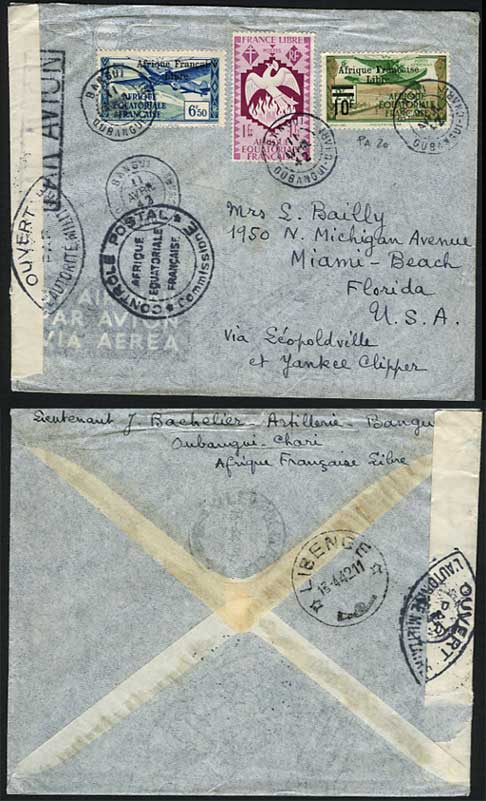 Afrique Française
Libre
AFRIQUE
EQUATORIALE
FRANÇAISE
6F50
FRANCE LIBRE
POSTES
AFRIQUE
EQUATORIALE
FRANÇAISE
Afrique Française
Libre
10F
AFRIQUE
EQUATORIALE
FRANÇAISE
BANGUI
OUBANGUI-CHARI
PA 20
PAR AVION
BANGUI
11
AVRIL
42
OUVERT
PAR
L'AUTORITÉ MILITAIRE
CONTRÔLE POSTAL
Commission E
AFRIQUE
EQUATORIALE
FRANÇAISE
PAR AVION
VIA AEREA
Mrs L. Bailly
1950 N. Michigan Avenue
Miami-Beach
Florida
U.S.A.
Via Léopoldville
et Yankee Clipper
Lieutenant J. Bachelier - Artillerie - Bangu
Oubangui-Chari
Afrique Française Libre
LIBENGE
13-4-42-11
OUVERT
L'AUTORITÉ MILITAIRE